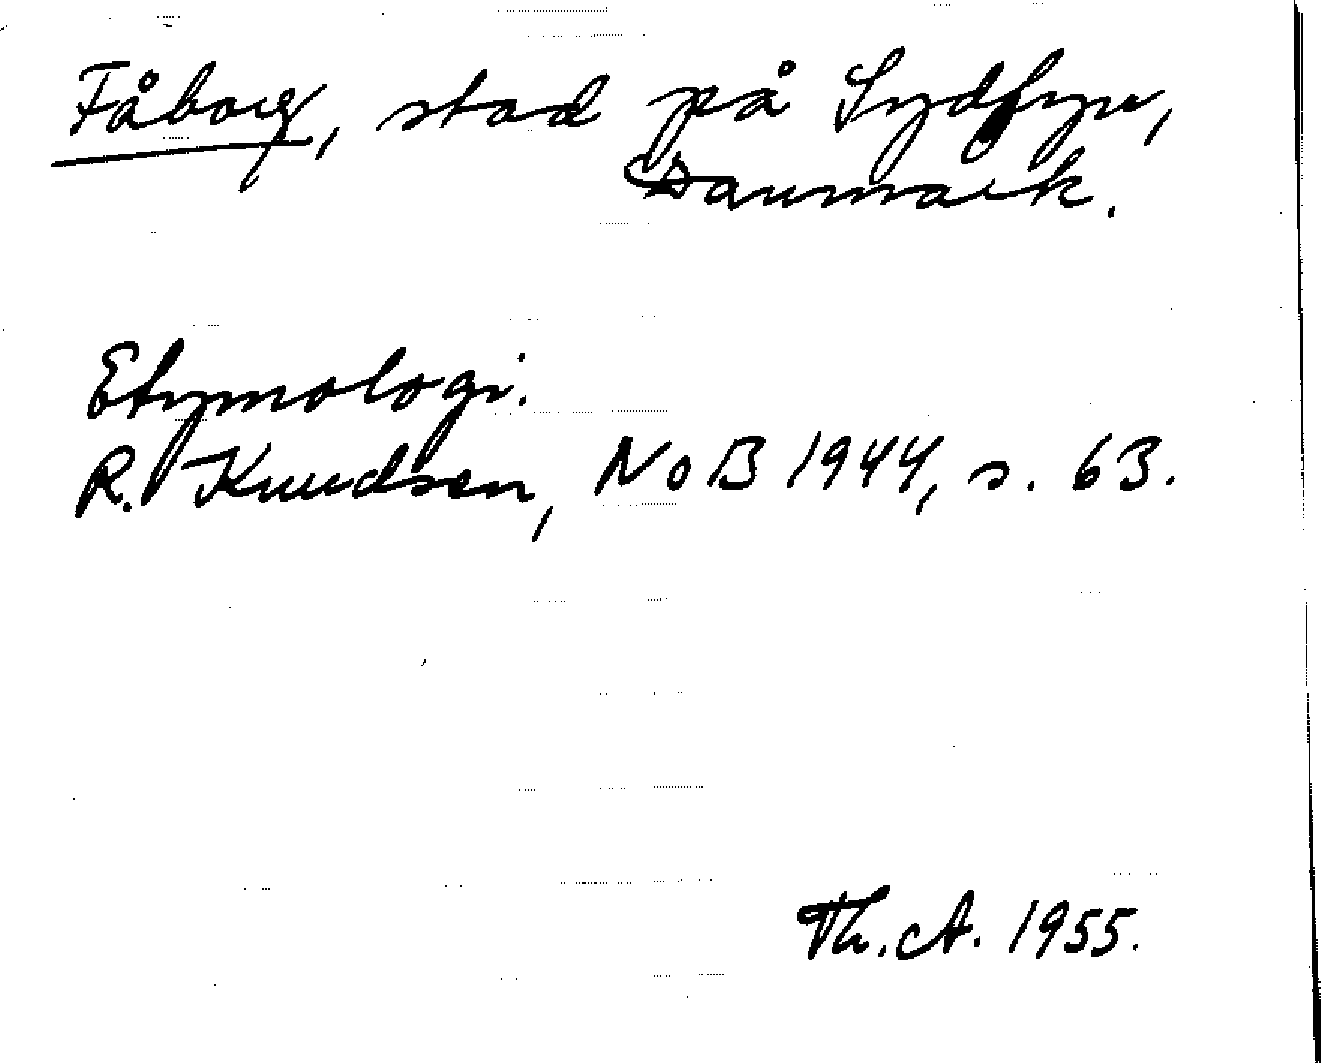 Fåborg, stad på Sydfyn,
Danmark.
Etymologi.
R. Knudsen, NoB 1944, s. 63.
Th. A. 1955.